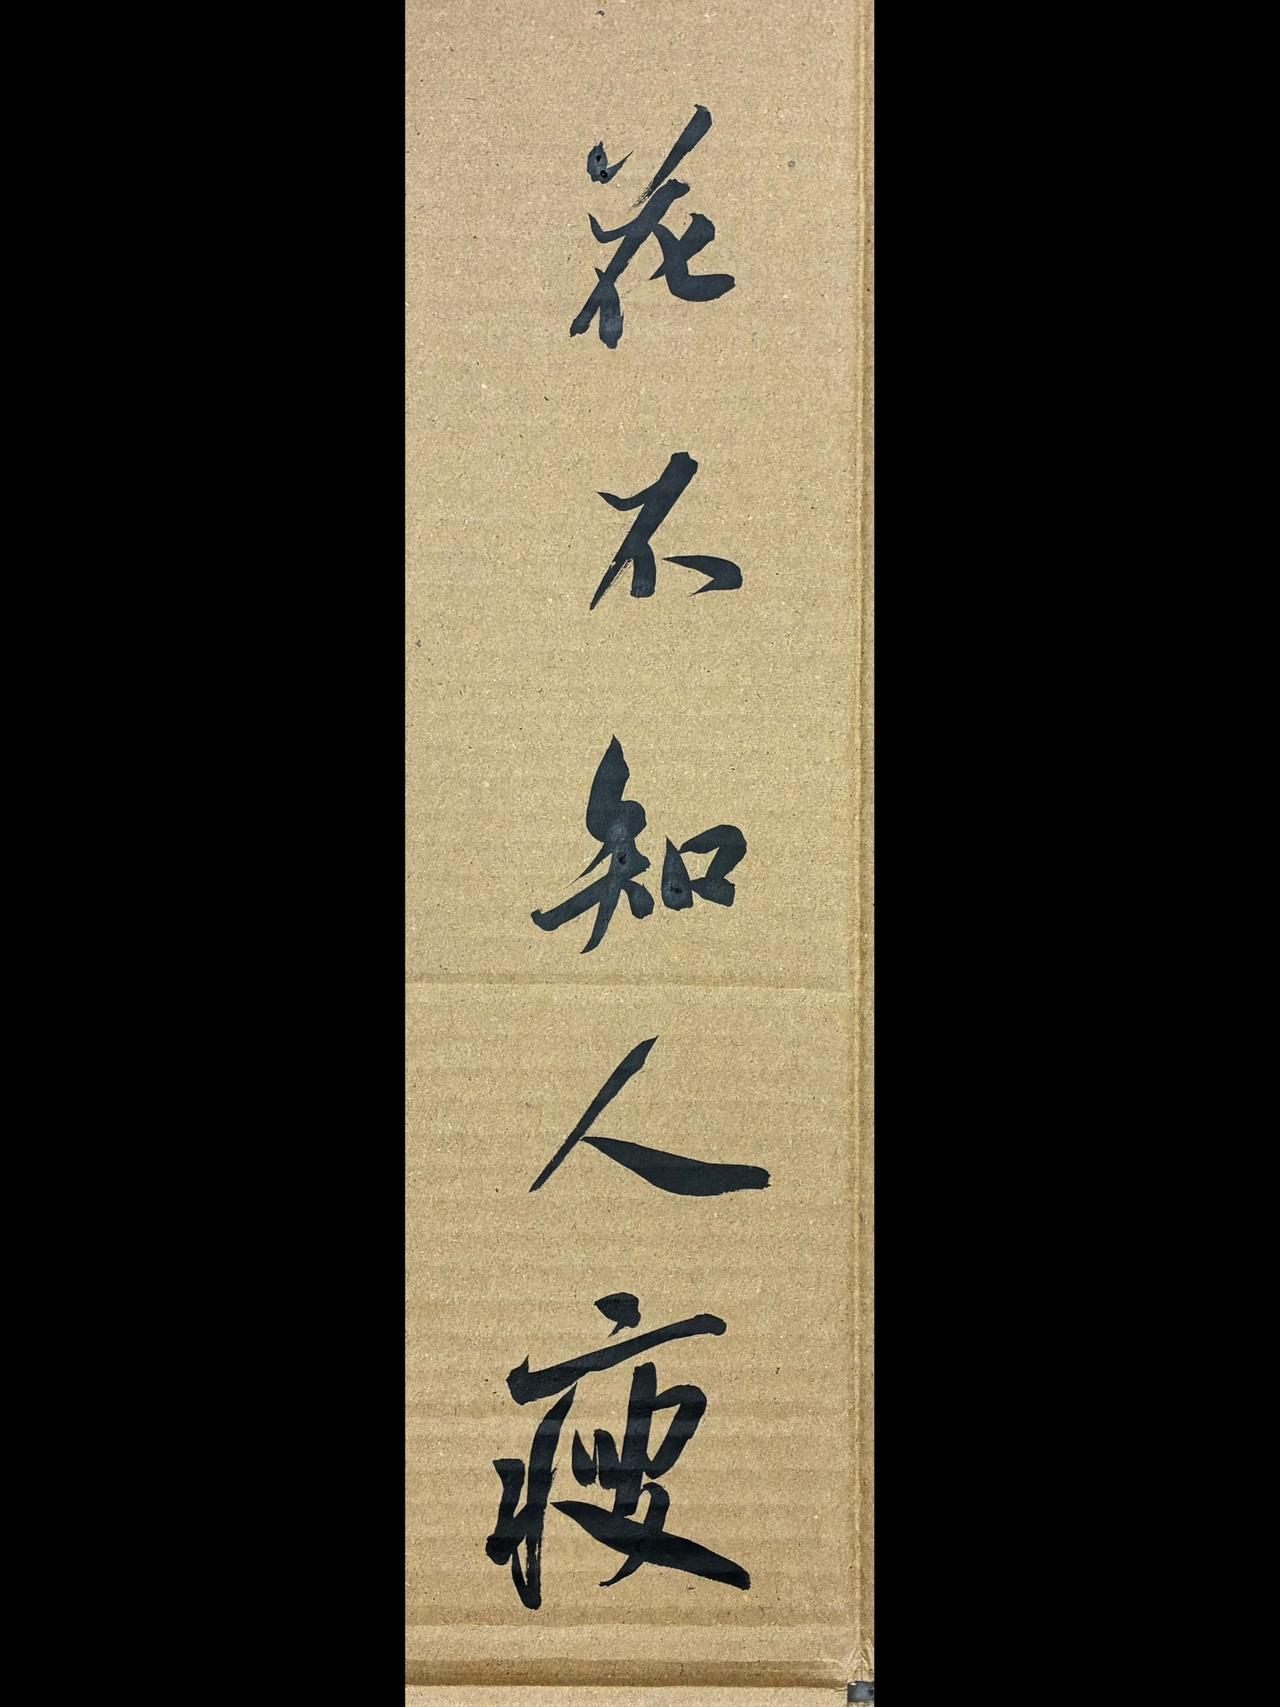 花不知人瘦